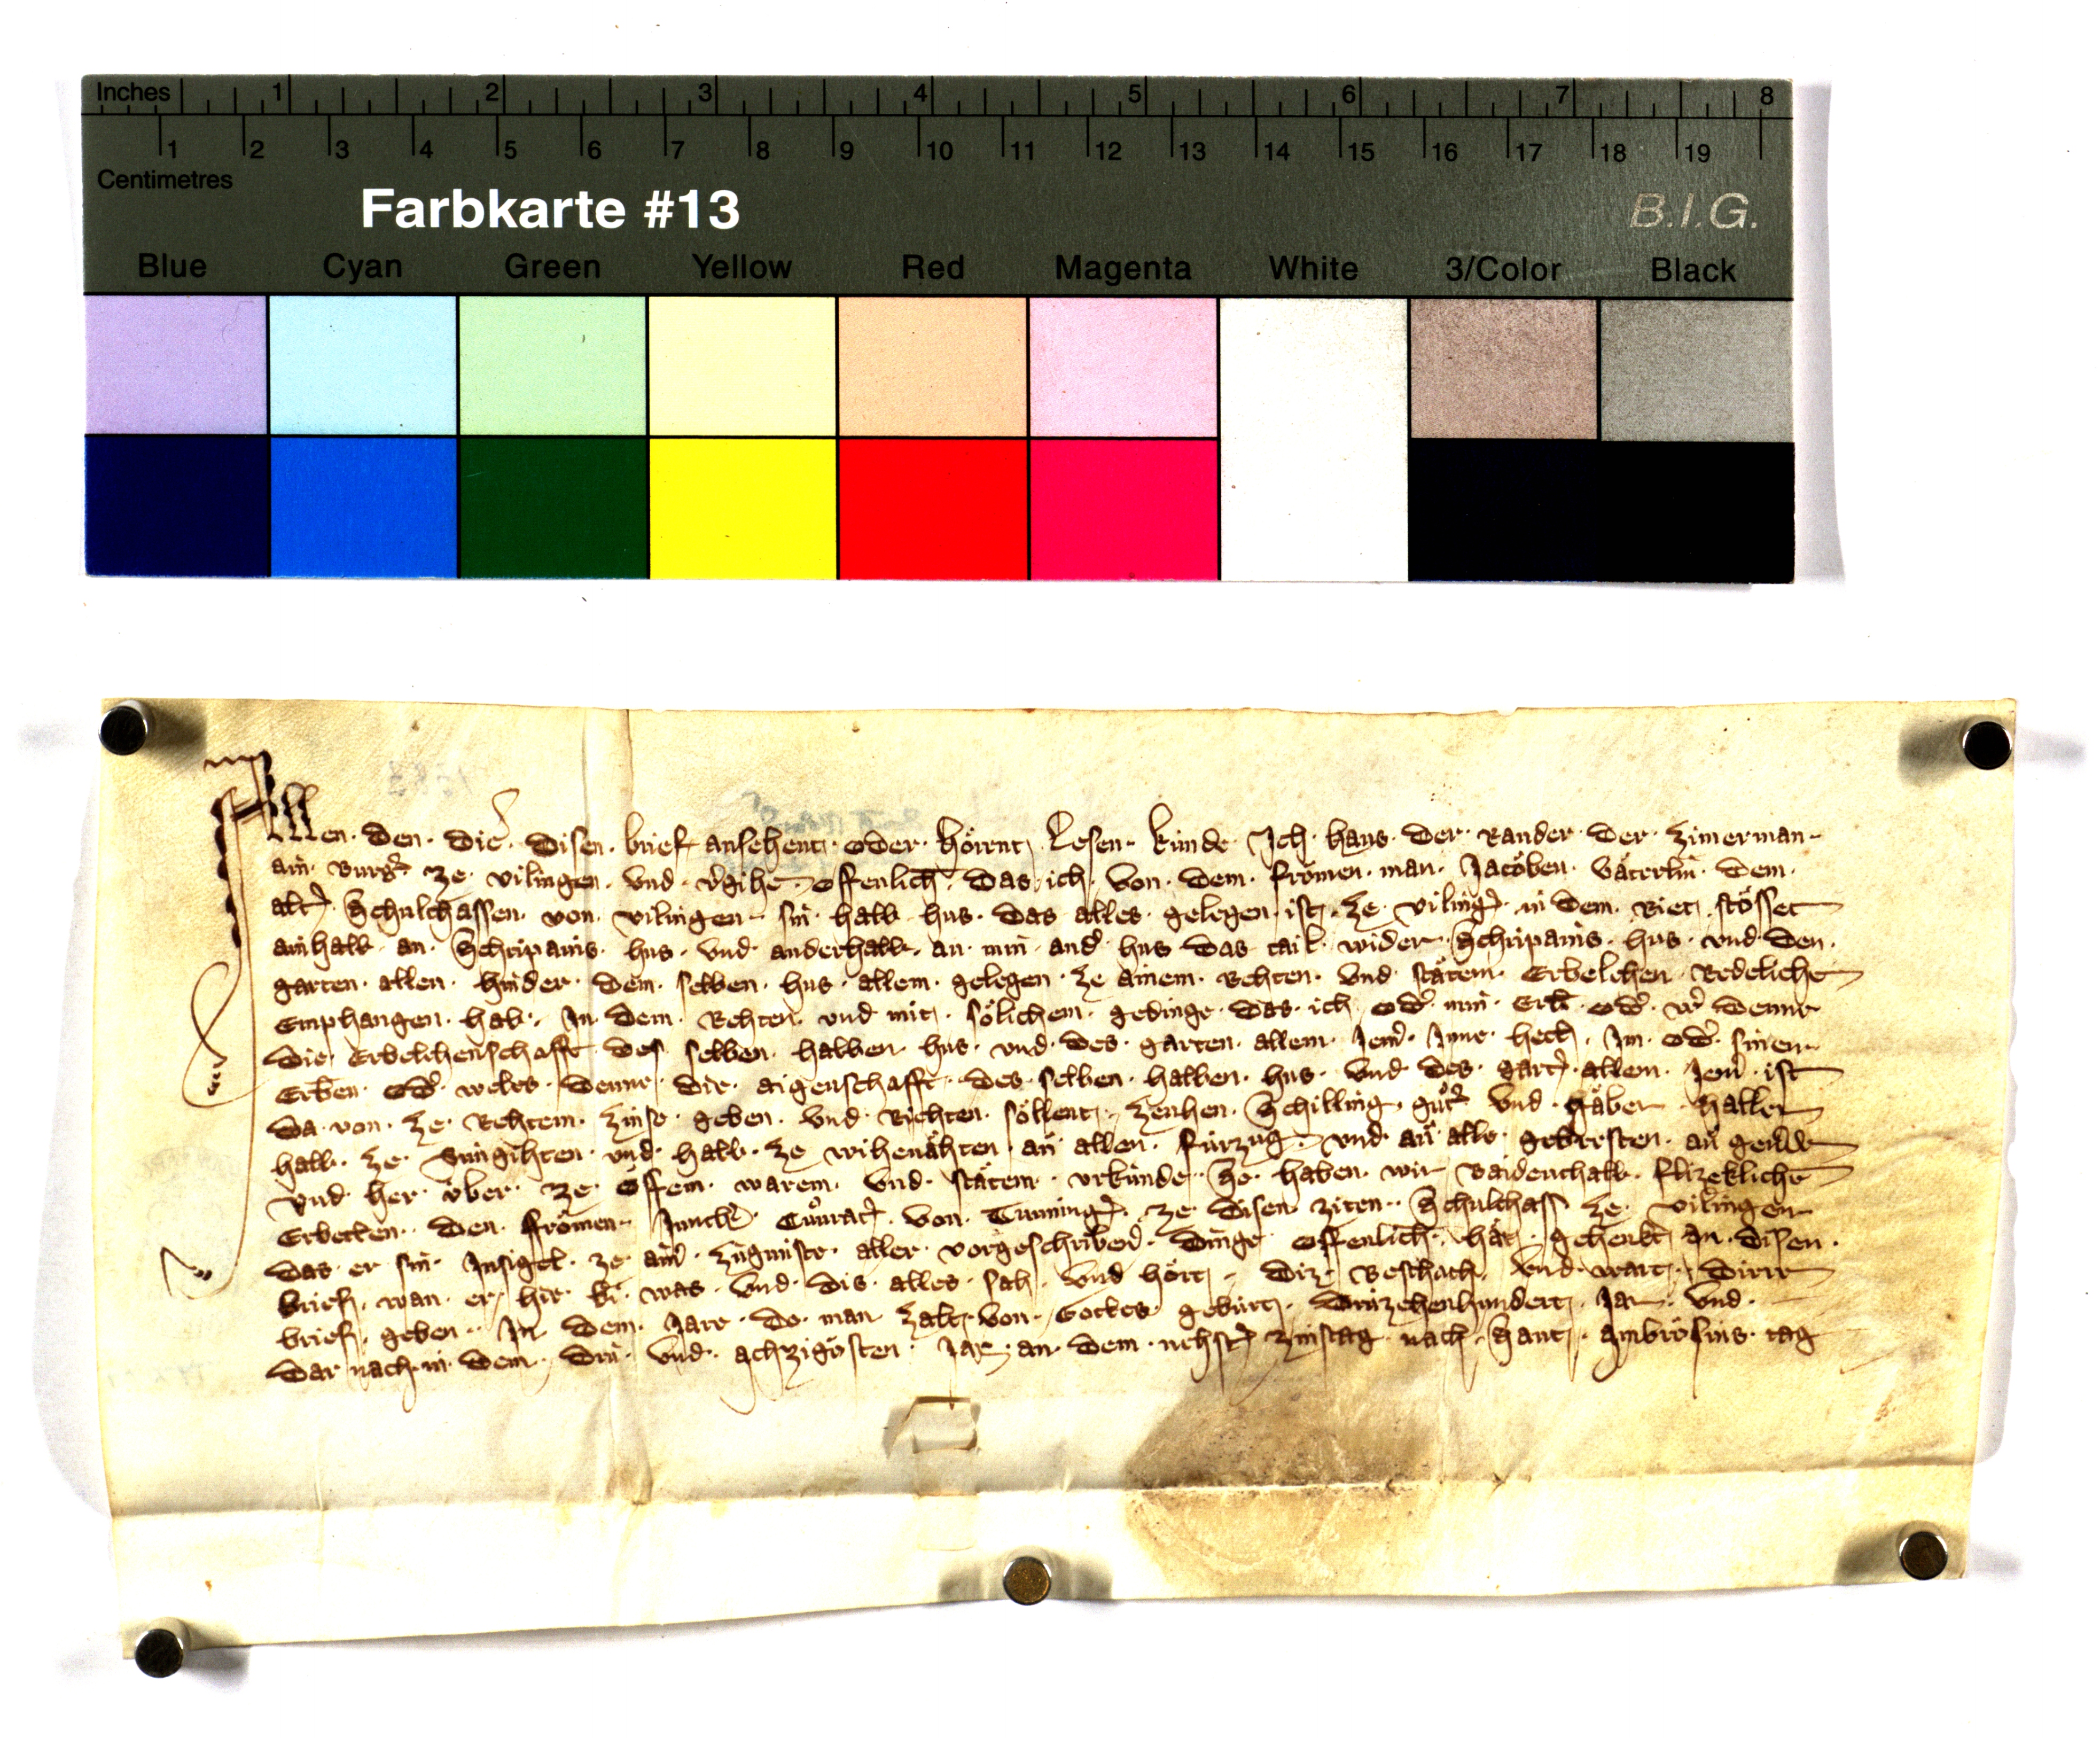 Inches 1 2 3 4 5 6 7 8
1 2 3 4 5 6 7 8 9 10 11 12 13 14 15 16 17 18 19
Centimetres
Farbkarte #13 B.I.G.
Blue Cyan Green Yellow Red Magenta White 3/Color Black
Allen · den · die · disen · brief ansehent · oder · hörent · Lesen · künde · Ich · hans · der · Rander · der · zimerman ·
ain · burg̾ · ze · vilingen · vnd · v̾gihe · offenlich · das · ich · von · dem · fromen · man · Jacoben · väterlin · dem ·
alt̾ · Schulthassen · von · vilingen · sin · halb · hus · das · alles · gelegen · ist · ze · viling̾ · in dem · Riet · stösset
ainhalb · an · hus · vnd · anderhalb · an · min · and̾ · hus · das · tail · wider · hus · vnd · den ·
garten · allen · hinder · dem · selben · hus · allem · gelegen · ze ainem · Rehten · vnd · stätem · Erbelehen · Redeliche
Emphangen · hab · In · dem · Rehten · vnd · mit · sölichem · gedinge · das · ich · od̾ · min · Erbē · od̾ · w̾ · denne
die · Erbelehenschafft · des · selben · halben · hus · vnd · des · garten · allem · Jem̾ · Inne · hett · Im · od̾ · sinen ·
Erben · od̾ · weles · denne · die · aigenschafft · des · selben · halben · hus · vnd · des · gart̾ · allem · Jem̾ · ist
da · von · ze · Rehtem · zinse · geben · vnd · Richten · söllent · zenhen · Schilling · gůt̾ · vnd · gäber · haller
halb · ze · Sungihten · vnd · halb · ze · wihenähten · an allen · fürzug · vnd · an alle · gebresten · an geuerde
vnd · her · über · ze · offem · warem · vnd · stätem · vrkünde · So · haben · wir · baidenthalb · flizekliche
Erbetten · den · fromen · Junch̾ · Cůnrat̾ · von · Tunning̾ · ze · disen · ziten · Schulthass · ze · vilingen
das · er · sin · Insigel · ze · aim̾ · zügniste · aller · vorgeschriben̾ · dinge · offenlich · hät · gehenkt · an · disen ·
brief · wan · er · hie · bi · was · vnd · dis · alles · sah · vnd · hört · diz · beschach · vnd · wart · dirre
brief · geben · In · dem · Jare · do · man · zalt · von · Gottes · gebürt · drüzehenhundert · Jar · vnd ·
dar · nach · in · dem · drü · vnd · achzigosten · Jar · an · dem · nehst̾ · zinstag · nach · Sant · Ambrosius · tag